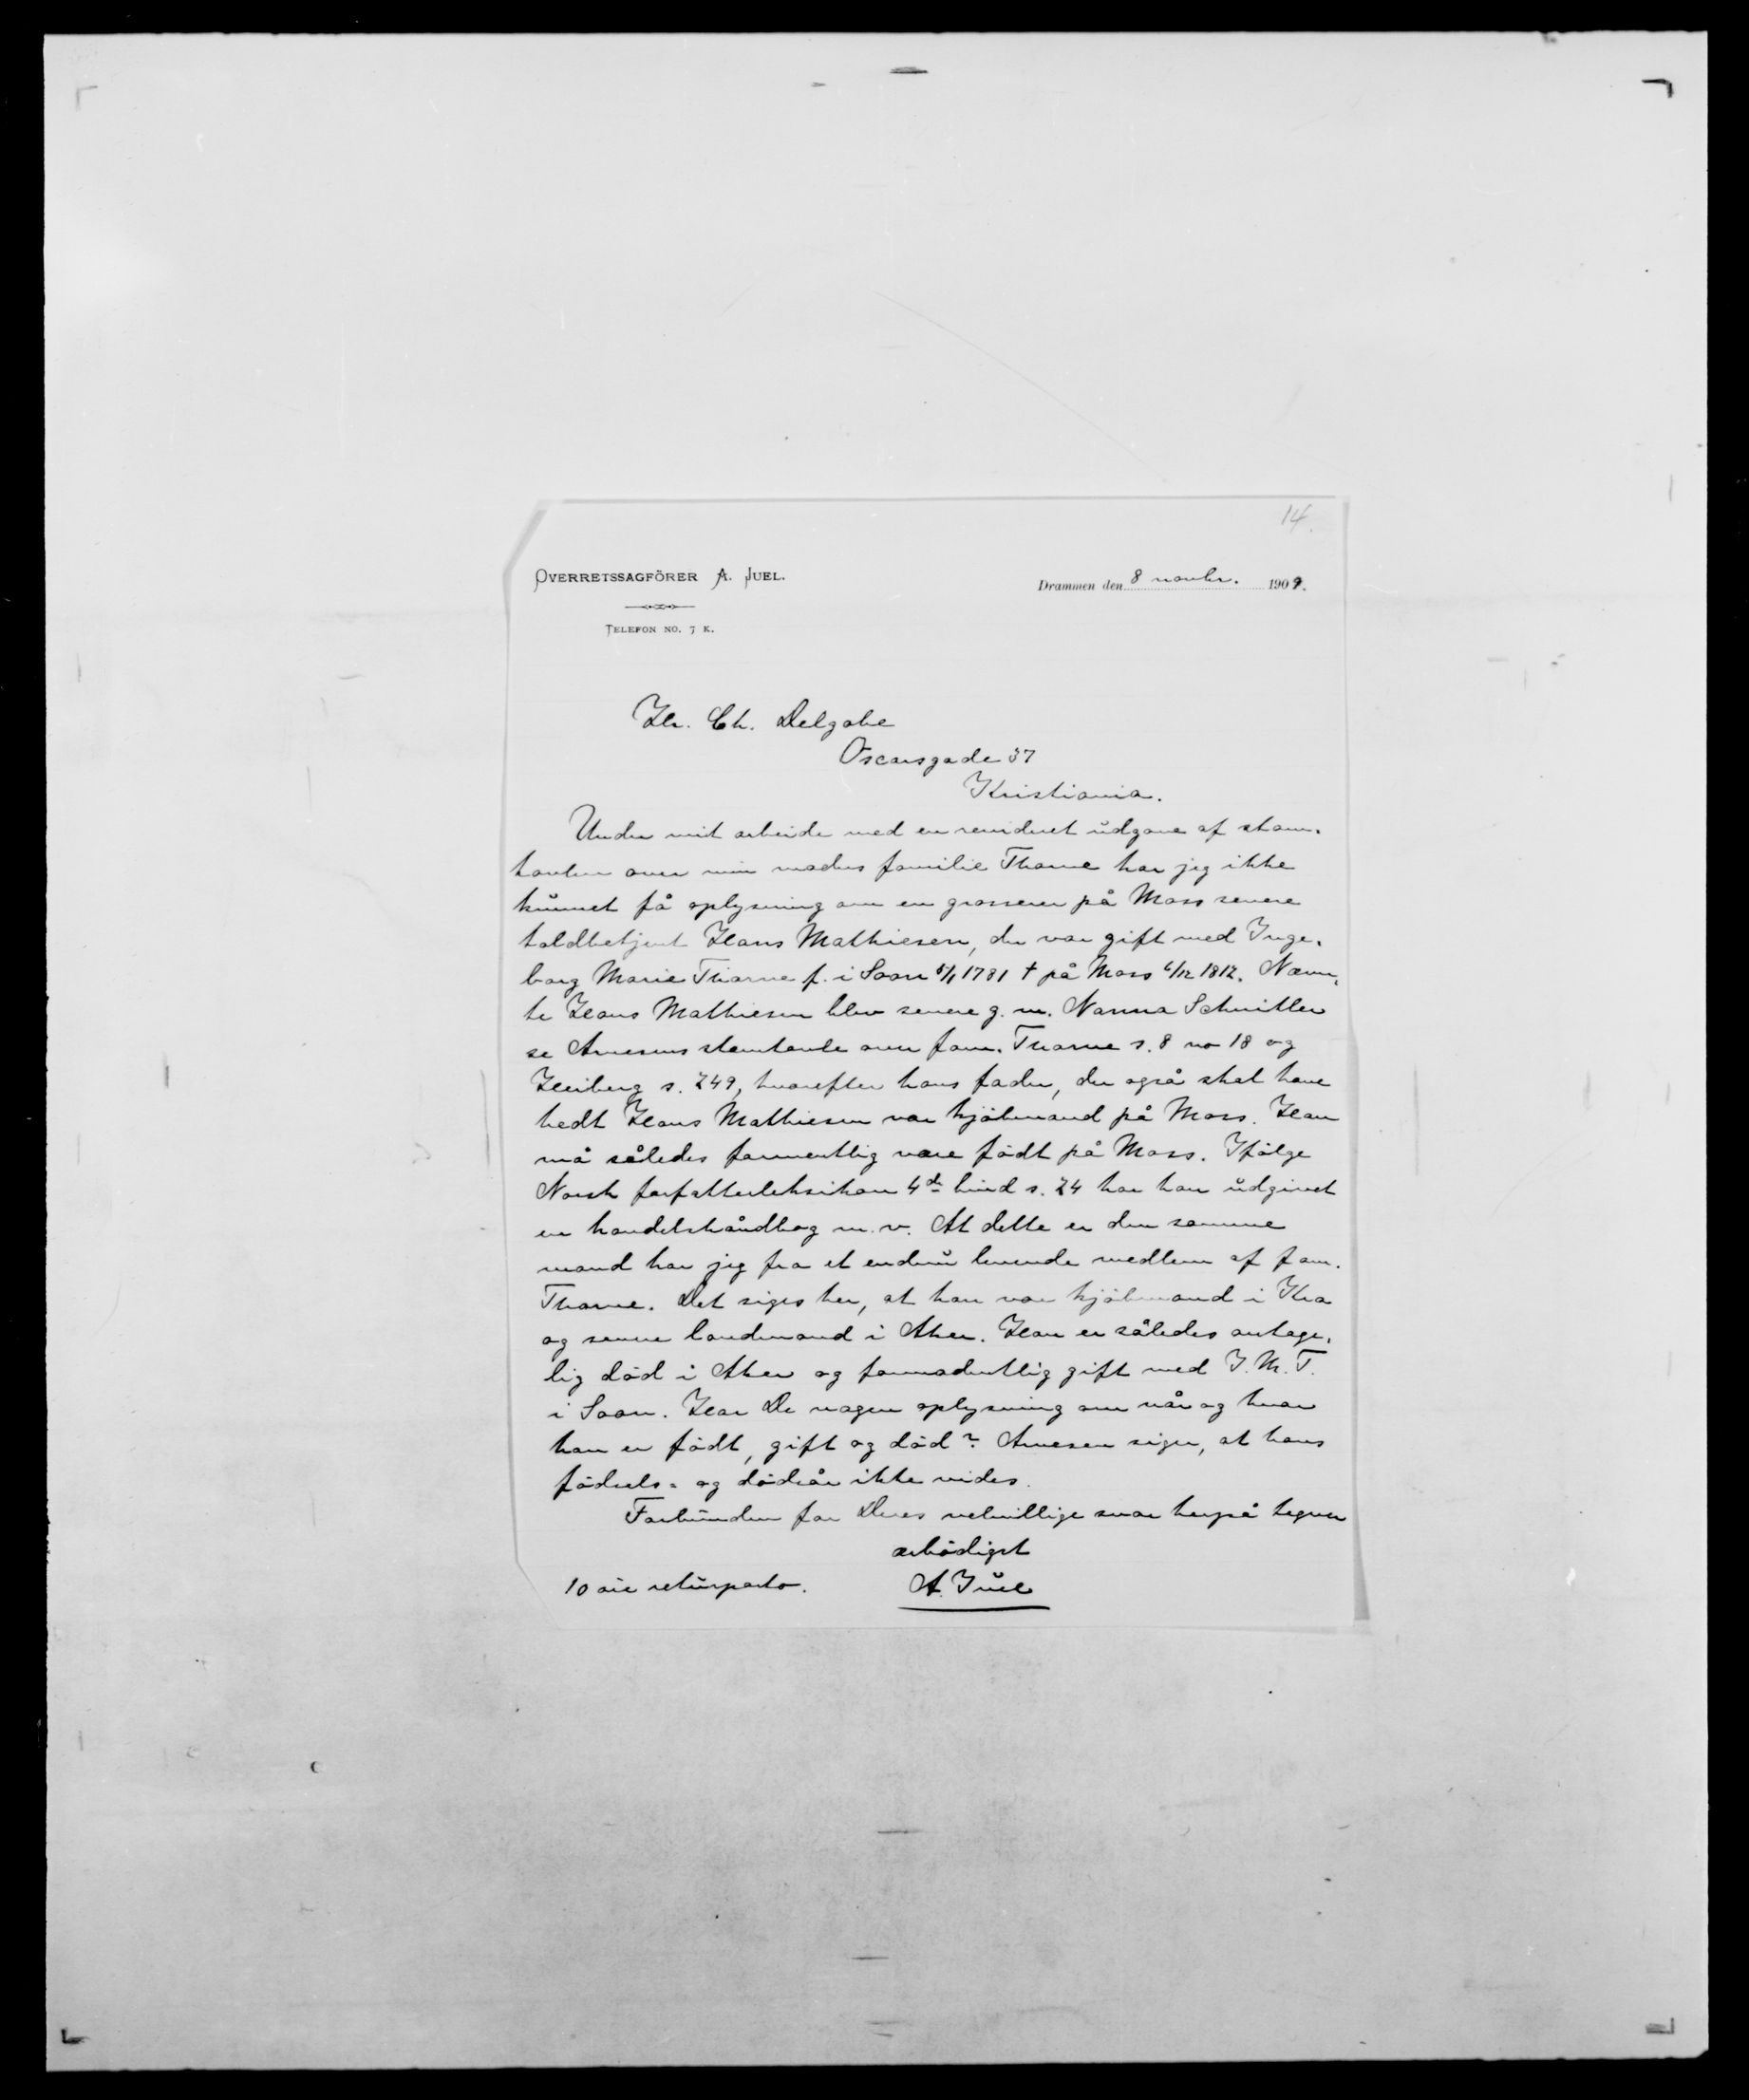 14.
OVERRETSSAGFÖRER A. JUEL.
Drammen den 8 novbr. 1909.
TELEFON NO. 7 K.
Hr. Ch. Delgobe
Oscarsgade 37
Kristiania.
Under mit arbeide med en revideret udgave af stam-
tavlen over min moders familie Thorne har jeg ikke
kunnet få oplysning om en grosserer på Moss senere
toldbetjent Hans Mathiesen, der var gift med Inge-
borg Marie Thorne f. i Soon 5/1 1781 † på Moss 6/12 1812. Nævn-
te Hans Mathiesen blev senere g. m. Nanna Schnitler
se Arnesens stamtavle over fam. Thorne s. 8 no 18 og
Heiberg s. 249, hvorefter hans fader, der også skal have
hedt Hans Mathiesen var kjöbmand på Moss. Han
må således formentlig være född på Moss. Ifölge
Norsk forfatterleksikon 4de bind s. 24 har han udgivet
en handelshåndbog m. v. At dette er den samme
mand har jeg fra et endnu levende medlem af fam.
Thorne. Det siges her, at han var kjöbmand i Kra
og senere landmand i Aker. Han er således antage-
lig död i Aker og formodentlig gift med I. M. T.
i Soon. Har De nogen oplysning om når og hvor
han er födt, gift og död? Arnesen siger, at hans
födsels- og dödsår ikke vides.
Forbunden for Deres velvillige svar herpå tegner
ærbödigst
10 öre returporto. A. Juel